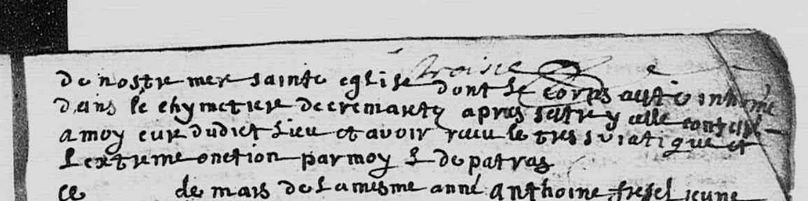 troisie
de nostre mere sainte eglise dont le corps a esté inhumé
dans le chymetiere de cremarest apres sestre y celle confessé
a moy curé dudict lieu et avoir receu le tres s viatique et
l extreme onction par moy L de patras
ce de mars de la mesme anné anthoine fresel jeune